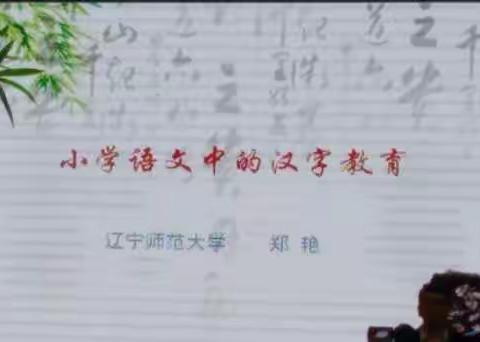 小学语文中的汉字教育
辽宁师范大学 郑 艳